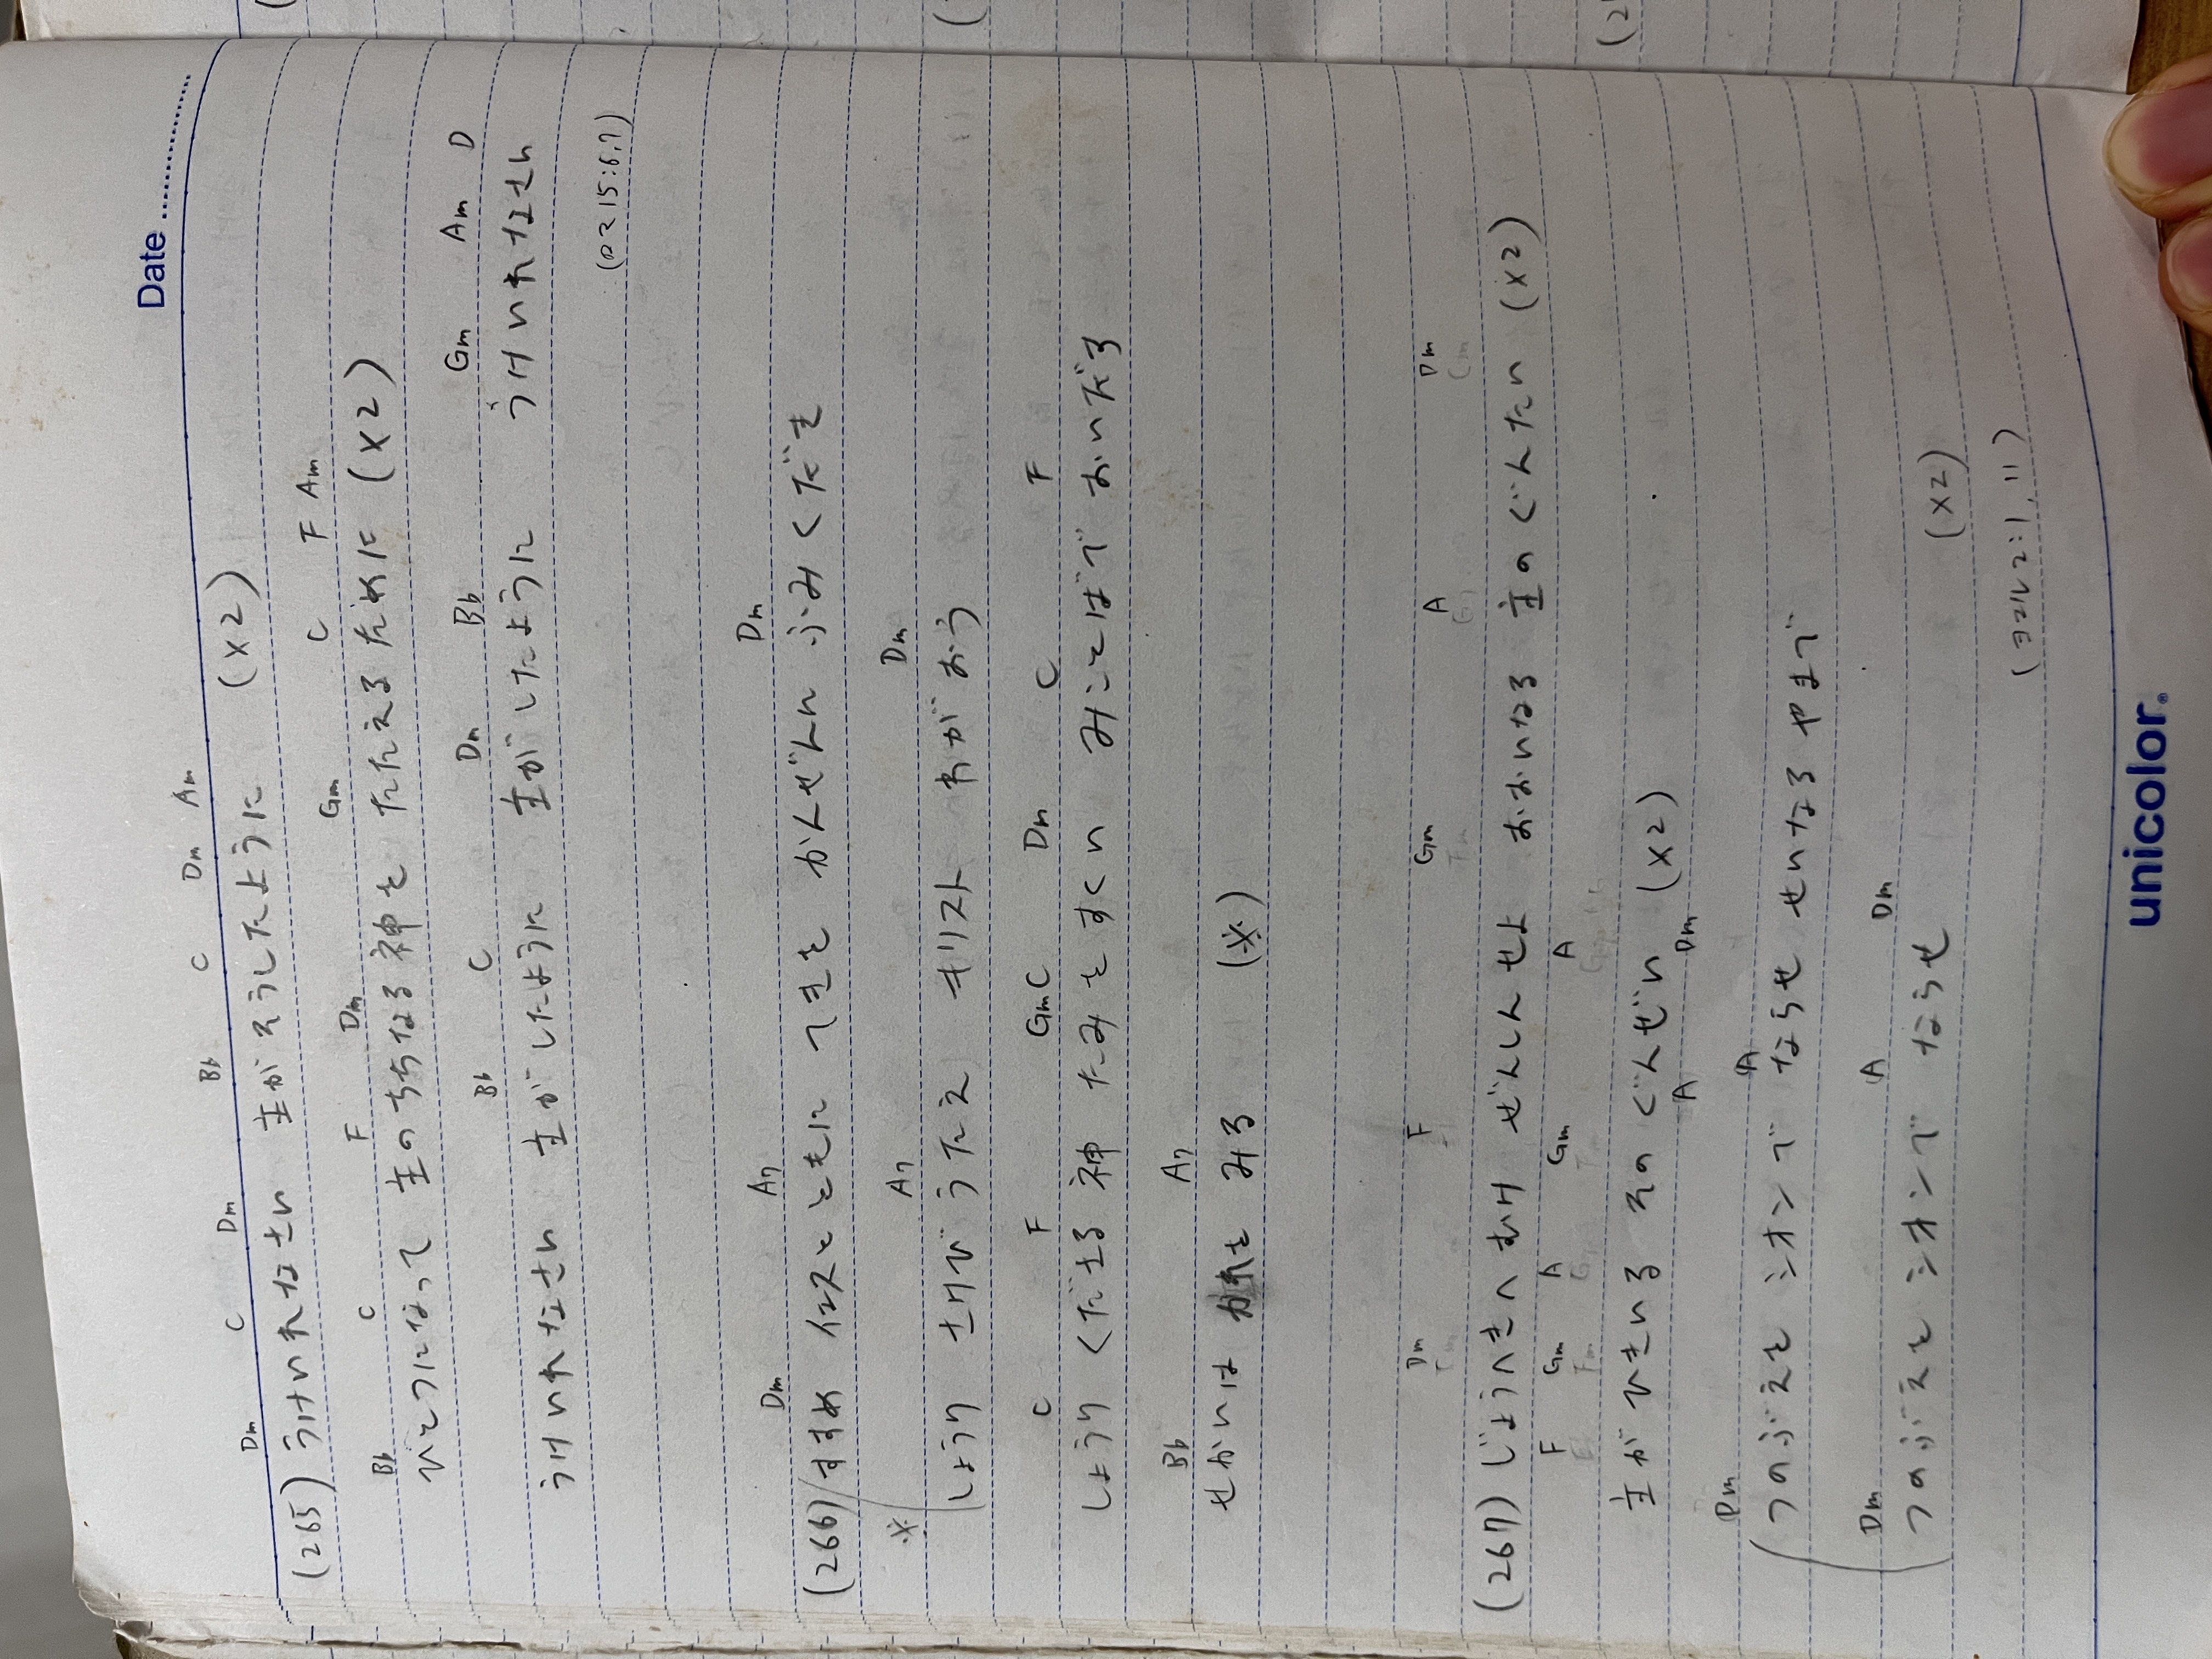 Date
Dm C Dm Bb C Dm Am
(265) うけいれなさい 主がそうしたように (x2)
Bb C F Dm Gm C F Am
ひとつになって 主のちちなる神をたたえるために (x2)
Bb C Dm Bb Gm Am D
うけいれなさい 主がしたように 主がしたように うけいれなさい
(ロマ 15:6,7)
Dm A7 Dm
(266) すすめ イエスとともに てきを かんぜんに ふみくだき
※ A7 Dm
しょうり さけび うたえ キリスト わがおう
C F Gm C Dm C F
しょうり くださる神 たみをすくい みことばで おいだる
Bb A7
せかいは かれを みる (※)
Dm F Gm A Dm
(267) じょうへきへむけ ぜんしんせよ おおいなる 主のぐんたい (x2)
F Gm A Gm A
主が ひきいる そのぐんぜい (x2)
A Dm
Dm A
つのぶえを シオンで ならせ せいなるやまで
Dm A Dm
つのぶえを シオンで ならせ (x2)
(ヨエル 2:1,11)
unicolor.